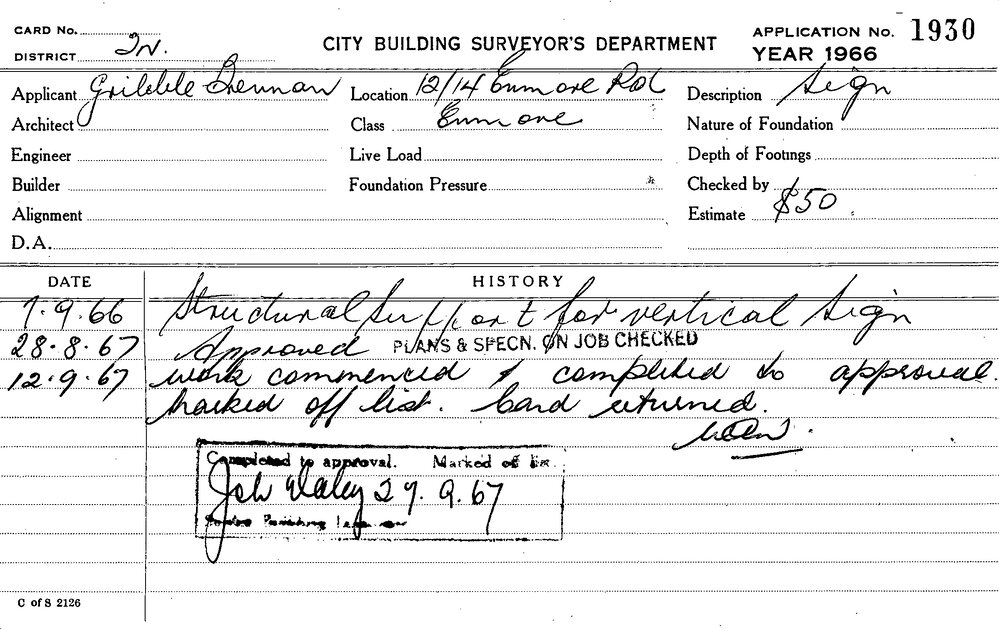 CARD No.
DISTRICT
CITY BUILDING SURVEYOR'S DEPARTMENT
APPLICATION No. 1930
YEAR 1966
Applicant Gribble Brennan
Location 12/14 Enmore Rd
Description Sign
Architect
Class Enmore
Nature of Foundation
Engineer
Live Load
Depth of Footings
Builder
Foundation Pressure
Checked by
Alignment
Estimate $50
D.A.
DATE HISTORY
7.9.66 Structural Support for vertical Sign
28.8.67 Approved PLANS & SPECN. ON JOB CHECKED
12.9.67 work commenced & completed to approval.
Marked off list. Card returned.
Completed to approval. Marked off
27.9.67
C of S 2126